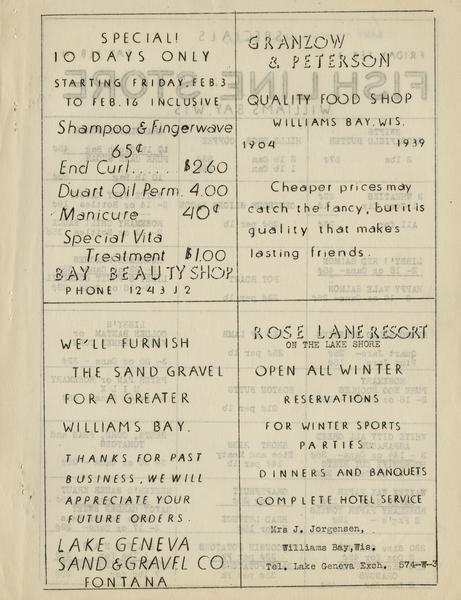 SPECIAL!
10 DAYS ONLY
STARTING FRIDAY, FEB. 3
TO FEB. 16 INCLUSIVE
Shampoo & Fingerwave
65¢
End Curl...... $2.60
Duart Oil Perm. 4.00
Manicure 40¢
Special Vita
Treatment $1.00
BAY BEAUTY SHOP
PHONE 1243J2
GRANZOW
& PETERSON
QUALITY FOOD SHOP
WILLIAMS BAY, WIS.
1904 1939
Cheaper prices may
catch the fancy, but it is
quality that makes
lasting friends.
WE'LL FURNISH
THE SAND GRAVEL
FOR A GREATER
WILLIAMS BAY.
THANKS FOR PAST
BUSINESS, WE WILL
APPRECIATE YOUR
FUTURE ORDERS.
LAKE GENEVA
SAND & GRAVEL CO
FONTANA
ROSE LANE RESORT
ON THE LAKE SHORE
OPEN ALL WINTER
RESERVATIONS
FOR WINTER SPORTS
PARTIES.
DINNERS AND BANQUETS
COMPLETE HOTEL SERVICE
Mrs J. Jorgensen,
Williams Bay, Wis.
Tel. Lake Geneva Exch. 574-W-3